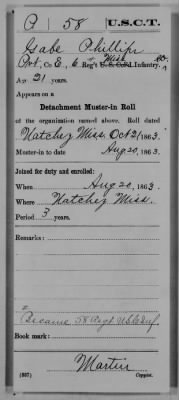 P | 58 | U.S.C.T.
Gabe Phillips
Pvt, Co. E, 6 Reg't Miss. U. S. Col'd Infantry.
Age 21 years.
Appears on a
Detachment Muster-in Roll
of the organization named above. Roll dated
Natchez Miss. Oct 21, 1863.
Muster-in to date Aug 20, 1863.
Joined for duty and enrolled:
When Aug 20, 1863.
Where Natchez Miss.
Period 3 years.
Remarks:
Became 58 Regt
Book mark:
Martin
(357) Copyist.